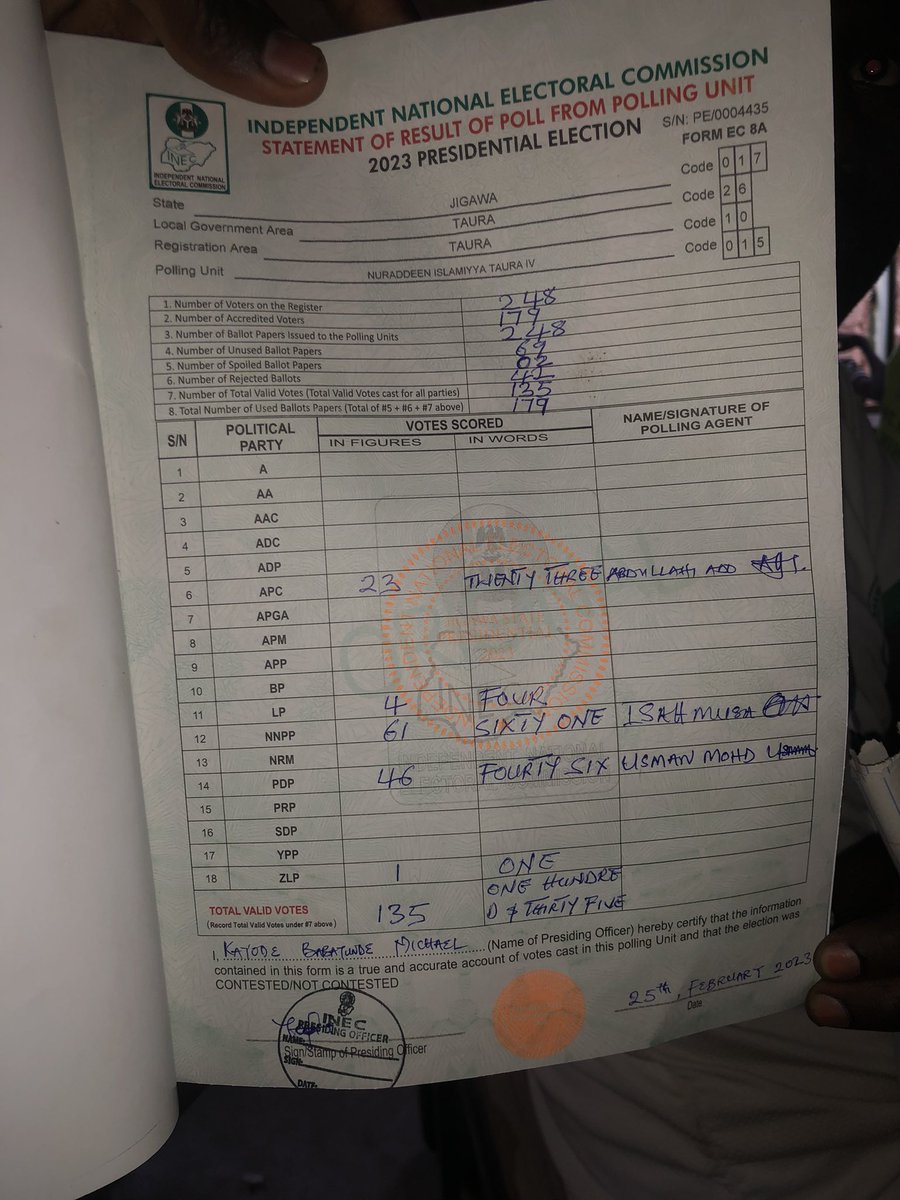 INDEPENDENT NATIONAL ELECTORAL COMMISSION
STATEMENT OF RESULT OF POLL FROM POLLING UNIT
2023 PRESIDENTIAL ELECTION
S/N: PE/0004435
FORM EC 8A
INEC
INDEPENDENT NATIONAL
ELECTORAL COMMISSION
State JIGAWA Code 0 1 7
Local Government Area TAURA Code 2 6
Registration Area TAURA Code 1 0
Polling Unit NURADDEEN ISLAMIYYA TAURA IV 0 1 5
1. Number of Voters on the Register 248
2. Number of Accredited Voters 179
3. Number of Ballot Papers Issued to the Polling Units 248
4. Number of Unused Ballot Papers 69
5. Number of Spoiled Ballot Papers 02
6. Number of Rejected Ballots 42
7. Number of Total Valid Votes (Total Valid Votes cast for all parties) 135
8. Total Number of Used Ballots Papers (Total of #5 + #6 + #7 above) 179
S/N POLITICAL PARTY VOTES SCORED NAME/SIGNATURE OF POLLING AGENT
IN FIGURES IN WORDS
1 A
2 AA
3 AAC
4 ADC
5 ADP
6 APC 23 TWENTY THREE ABDULLAHI ADO
7 APGA
8 APM
9 APP
10 BP
11 LP 4 FOUR
12 NNPP 61 SIXTY ONE ISAH MUSA
13 NRM
14 PDP 46 FOURTY SIX USMAN MOHD
15 PRP
16 SDP
17 YPP
18 ZLP 1 ONE
TOTAL VALID VOTES 135 ONE HUNDRE
(Record Total Valid Votes under #7 above) D & THIRTY FIVE
I, KAYODE BABATUNDE MICHAEL (Name of Presiding Officer) hereby certify that the information
contained in this form is a true and accurate account of votes cast in this polling Unit and that the election was
CONTESTED/NOT CONTESTED
25th, FEBRUARY 2023
Date
INEC
PRESIDING OFFICER
NAME:
Sign/Stamp of Presiding Officer
SIGN:
DATE: